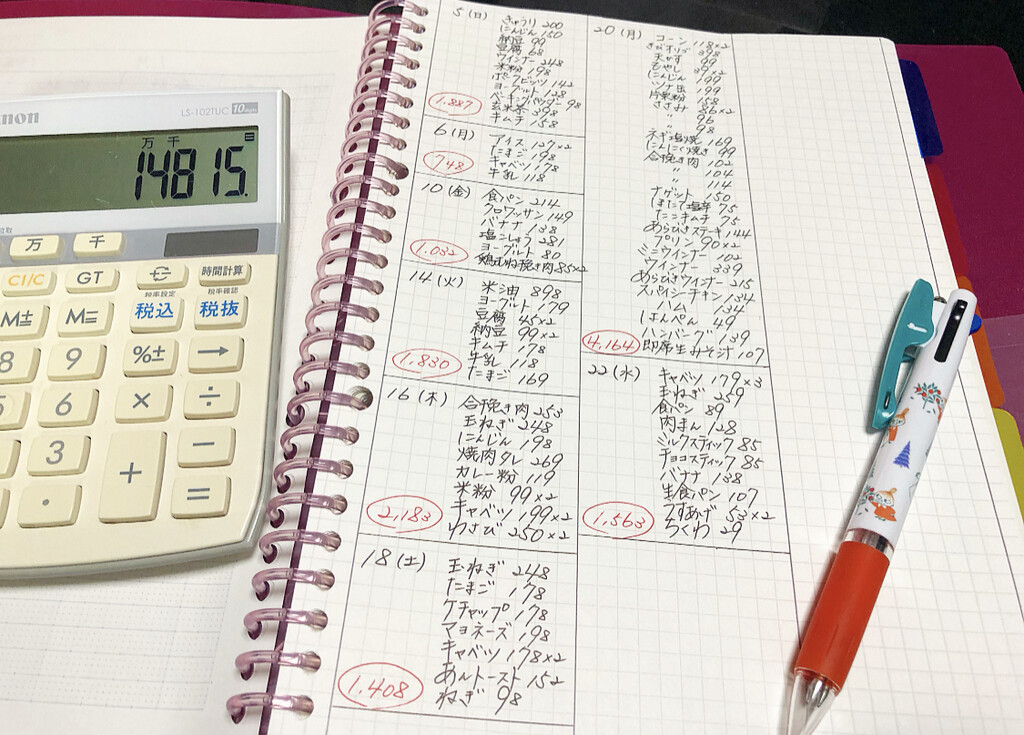 non
LS-102TUC
10
万 千
14815.
万
千
CI/C
GT
時間計算
税率設定
税率確認
M±
M=
税込
税抜
8
9
%±
→
5
6
×
÷
3
+
−
.
=
5(日)
きゅうり 200
にんじん 150
納豆 99
豆腐 68
ウインナー 248
米粉 198
ポークビッツ 142
ヨーグルト 128
ベーキングパウダー 98
玄米茶 398
キムチ 158
1.887
6(月)
アイス 127×2
たまご 198
キャベツ 178
牛乳 118
748
10(金)
食パン 214
クロワッサン 149
バナナ 138
塩こしょう 281
ヨーグルト 80
鶏むね挽き肉 85×2
1.032
14(火)
米油 898
ヨーグルト 179
豆腐 45×2
納豆 99×2
キムチ 178
牛乳 118
たまご 169
1.830
16(木)
合挽き肉 253
玉ねぎ 248
にんじん 198
焼肉タレ 269
カレー粉 119
米粉 99×2
キャベツ 199×2
わさび 250×2
2,183
18(土)
玉ねぎ 248
たまご 178
ケチャップ 178
マヨネーズ 198
キャベツ 178×2
あんトースト 152
ねぎ 98
1.408
20(月)
コーン 118×2
398
99
もやし 39
にんじん 199
ツナ缶 199
片栗粉 158
ささみ 86×2
〃 96
〃 98
ネギ塩焼 169
にんにく焼き 99
合挽き肉 102
〃 104
〃 114
ナゲット 150
ほたて塩辛 75
たこキムチ 75
あらびきステーキ 144
プリン 90×2
ミニウインナー 102
ウインナー 339
あらびきウインナー 215
スパイシーチキン 134
ハム 134
はんぺん 49
ハンバーグ 139
即席生みそ汁 107
4,164
22(水)
キャベツ 179×3
玉ねぎ 259
食パン 89
肉まん 128
ミルクスティック 85
チョコスティック 85
バナナ 138
生食パン 107
うすあげ 53×2
ちくわ 29
1,563